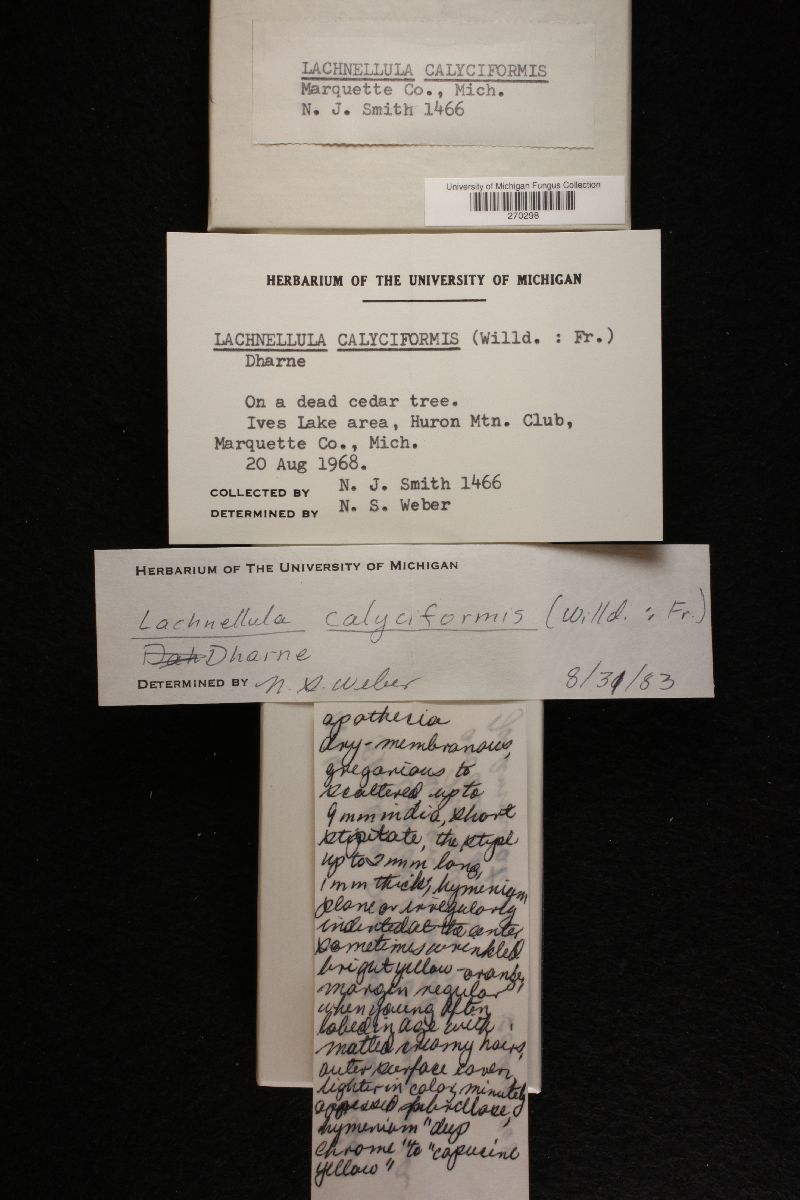 LACHNELLULA CALYCIFORMIS
Marquette Co., Mich.
N. J. Smith 1466
University of Michigan Fungus Collection
270298
HERBARIUM OF THE UNIVERSITY OF MICHIGAN
LACHNELLULA CALYCIFORMIS (Willd. : Fr.)
Dharne
On a dead cedar tree.
Ives Lake area, Huron Mtn. Club,
Marquette Co., Mich.
20 Aug 1968.
COLLECTED BY N. J. Smith 1466
DETERMINED BY N. S. Weber
HERBARIUM OF THE UNIVERSITY OF MICHIGAN
Lachnellula calyciformis (Willd. : Fr.)
Dah Dharne
DETERMINED BY N. S. Weber 8/31/83
apothecia
dry-membranous,
gregarious to
scattered up to
9 mm in dia, short
stipitate, the stipe
up to 2 mm long,
1 mm thick; hymenium
plane or irregularly
indented at the center
sometimes wrinkled
bright yellow-orange,
margin regular
when young often
lobed in age with
matted creamy hairs,
outer surface even,
lighter in color, minutely
appressed fibrillose,
hymenium "deep
chrome" to "capucine
yellow"